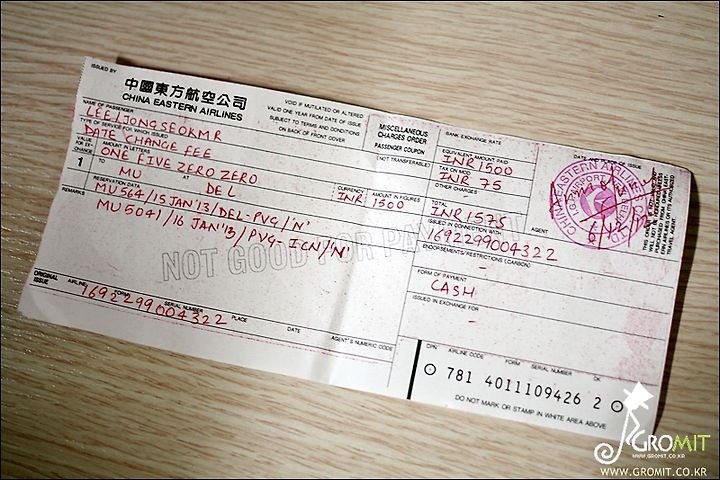 ISSUED BY
中國東方航空公司
CHINA EASTERN AIRLINES
VOID IF MUTILATED OR ALTERED
VALID ONE YEAR FROM DATE OF ISSUE
SUBJECT TO TERMS AND CONDITIONS
ON BACK OF FRONT COVER
MISCELLANEOUS
CHARGES ORDER
PASSENGER COUPON
(NOT TRANSFERABLE)
BANK EXCHANGE RATE
EQUIVALENT AMOUNT PAID
INR1500
TAX ON MOD
INR 75
OTHER CHARGES
DATE AND PLACE OF ISSUE
NAME OF PASSENGER
LEE/JONGSEOKMR
TYPE OF SERVICE FOR WHICH ISSUED
DATE CHANGE FEE
VALUE FOR EX-CHANGE
AMOUNT IN LETTERS
ONE FIVE ZERO ZERO
1
TO
MU
AT
DEL
CURRENCY
INR
AMOUNT IN FIGURES
1500
TOTAL
INR1575
RESERVATION DATA
MU564/15JAN'13/DEL-PVG/'N'
REMARKS
MU5041/16JAN'13/PVG-ICN/'N'
ISSUED IN CONNECTION WITH
1692299004322
AGENT
CHINA EASTERN AIRLINES
ENDORSEMENTS/RESTRICTIONS (CARBON)
-
NOT GOOD FOR PA
FORM OF PAYMENT
CASH
ISSUED IN EXCHANGE FOR
-
ORIGINAL ISSUE
AIRLINE
FORM
SERIAL NUMBER
PLACE
DATE
AGENT'S NUMERIC CODE
1692299004322
CPN
AIRLINE CODE
FORM
SERIAL NUMBER
CK
781 4011109426 2
DO NOT MARK OR STAMP IN WHITE AREA ABOVE
GROMIT
WWW.GROMIT.CO.KR
WWW.GROMIT.CO.KR